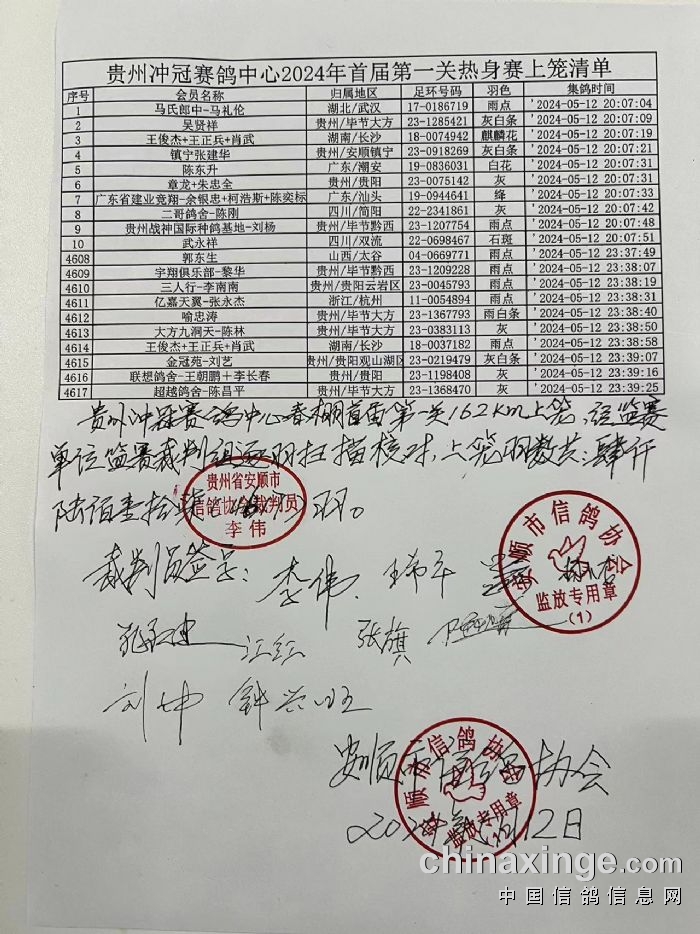 贵州冲冠赛鸽中心2024年首届第一关热身赛上笼清单
序号 会员名称 归属地区 足环号码 羽色 集鸽时间
1 马氏郎中-马礼伦 湖北/武汉 17-0186719 雨点 '2024-05-12 20:07:04
2 吴贤祥 贵州/毕节大方 23-1285421 灰白条 '2024-05-12 20:07:09
3 王俊杰+王正兵+肖武 湖南/长沙 18-0074942 麒麟花 '2024-05-12 20:07:19
4 镇宁张建华 贵州/安顺镇宁 23-0918269 灰白条 '2024-05-12 20:07:21
5 陈东升 广东/潮安 19-0836031 白花 '2024-05-12 20:07:31
6 章龙+朱忠全 贵州/贵阳 23-0075142 灰 '2024-05-12 20:07:31
7 广东省建业竞翔-余银忠+柯浩斯+陈奕标 广东/汕头 19-0944641 绛 '2024-05-12 20:07:33
8 二哥鸽舍-陈刚 四川/简阳 22-2341861 灰 '2024-05-12 20:07:42
9 贵州战神国际种鸽基地-刘杨 贵州/毕节黔西 23-1207754 雨点 '2024-05-12 20:07:48
10 武永祥 四川/双流 22-0698467 石斑 '2024-05-12 20:07:51
4608 郭东生 山西/太谷 04-0669771 雨点 '2024-05-12 23:37:49
4609 宇翔俱乐部-黎华 贵州/毕节黔西 23-1209228 雨点 '2024-05-12 23:38:07
4610 三人行-李南南 贵州/贵阳云岩区 23-0045793 雨点 '2024-05-12 23:38:19
4611 亿嘉天翼-张永杰 浙江/杭州 11-0054894 雨点 '2024-05-12 23:38:31
4612 喻忠涛 贵州/毕节大方 23-1367793 雨白条 '2024-05-12 23:38:40
4613 大方九洞天-陈林 贵州/毕节大方 23-0383113 灰 '2024-05-12 23:38:50
4614 王俊杰+王正兵+肖武 湖南/长沙 18-0037182 雨点 '2024-05-12 23:38:58
4615 金冠苑-刘艺 贵州/贵阳观山湖区 23-0219479 灰白条 '2024-05-12 23:39:07
4616 联想鸽舍-王朝鹏+李长春 贵州/贵阳 23-1368408 灰 '2024-05-12 23:39:16
4617 超越鸽舍-陈昌平 贵州/毕节大方 23-1368470 灰 '2024-05-12 23:39:25
贵州冲冠赛鸽中心春棚首届第一关162km上笼,经监赛
单位监赛裁判组逐羽扫描校对,上笼羽数共:肆仟
陆佰壹拾柒 羽。
贵州省安顺市
信鸽协会裁判员
李伟
裁判员签字: 李伟
安顺市信鸽协会
监放专用章
(1)
江红 张旗
刘坤
安顺市信鸽协会
安顺市信鸽协会
监放专用章
2024年5月12日
chinaxinge.com
中国信鸽信息网